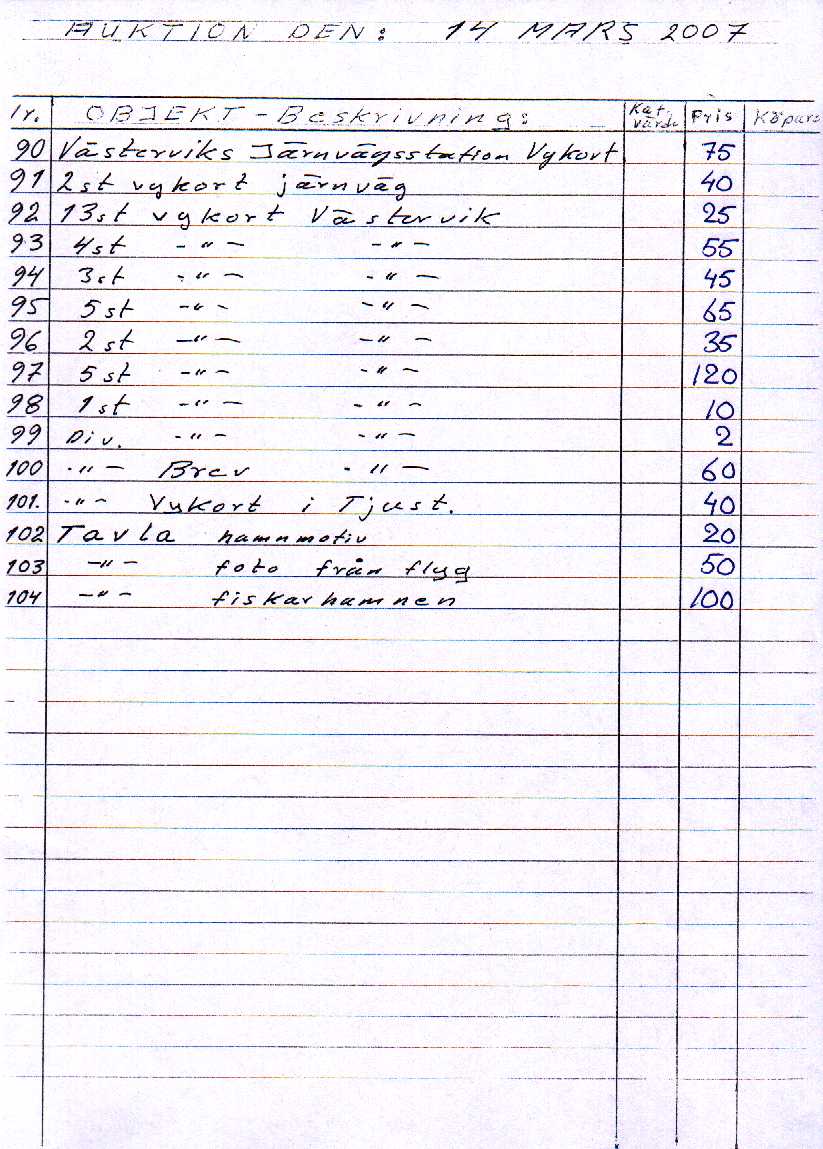 AUKTION DEN: 14 MARS 2007
Nr. OBJEKT - Beskrivning: Kat. värde Pris Köpare
90 Västerviks Järnvägsstation Vykort 75
91 2st vykort järnväg 40
92 13st vykort Västervik 25
93 4st -"- -"- 55
94 3st -"- -"- 45
95 5st -"- -"- 65
96 2st -"- -"- 35
97 5st -"- -"- 120
98 1st -"- -"- 10
99 Div. -"- -"- 2
100 -"- Brev -"- 60
101. -"- Vykort i Tjust. 40
102 Tavla hamnmotiv 20
103 -"- foto från flyg 50
104 -"- fiskarhamnen 100